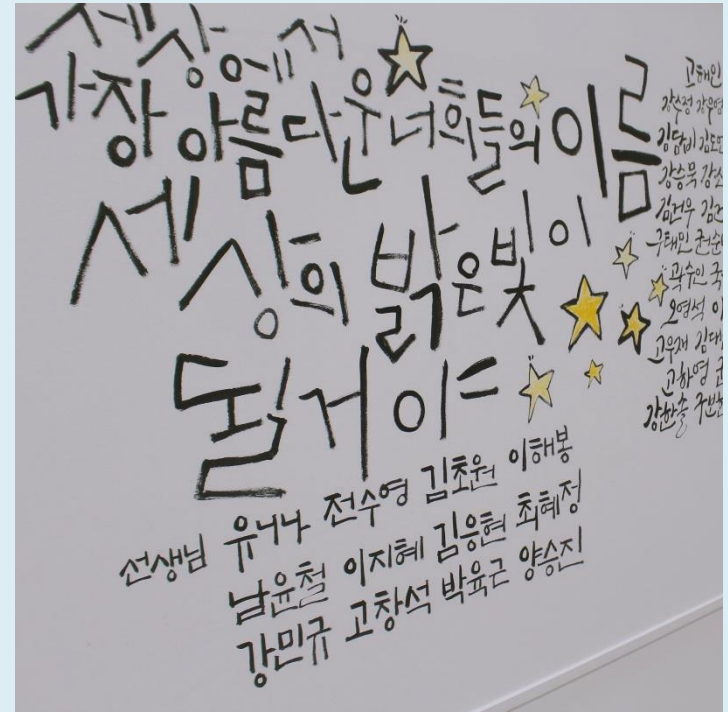 세상에서
가장 아름다운 너희들의 이름
세상의 밝은 빛이
될거야
선생님 유니나 전수영 김초원 이해봉
남윤철 이지혜 김응현 최혜정
강민규 고창석 박육근 양승진
고해인
강수정 강우영
김담비 김도언
강승묵
김건우
구태민 권순
곽수인 국
오영석 이
고우재 김대
고하영
강한솔 구보현